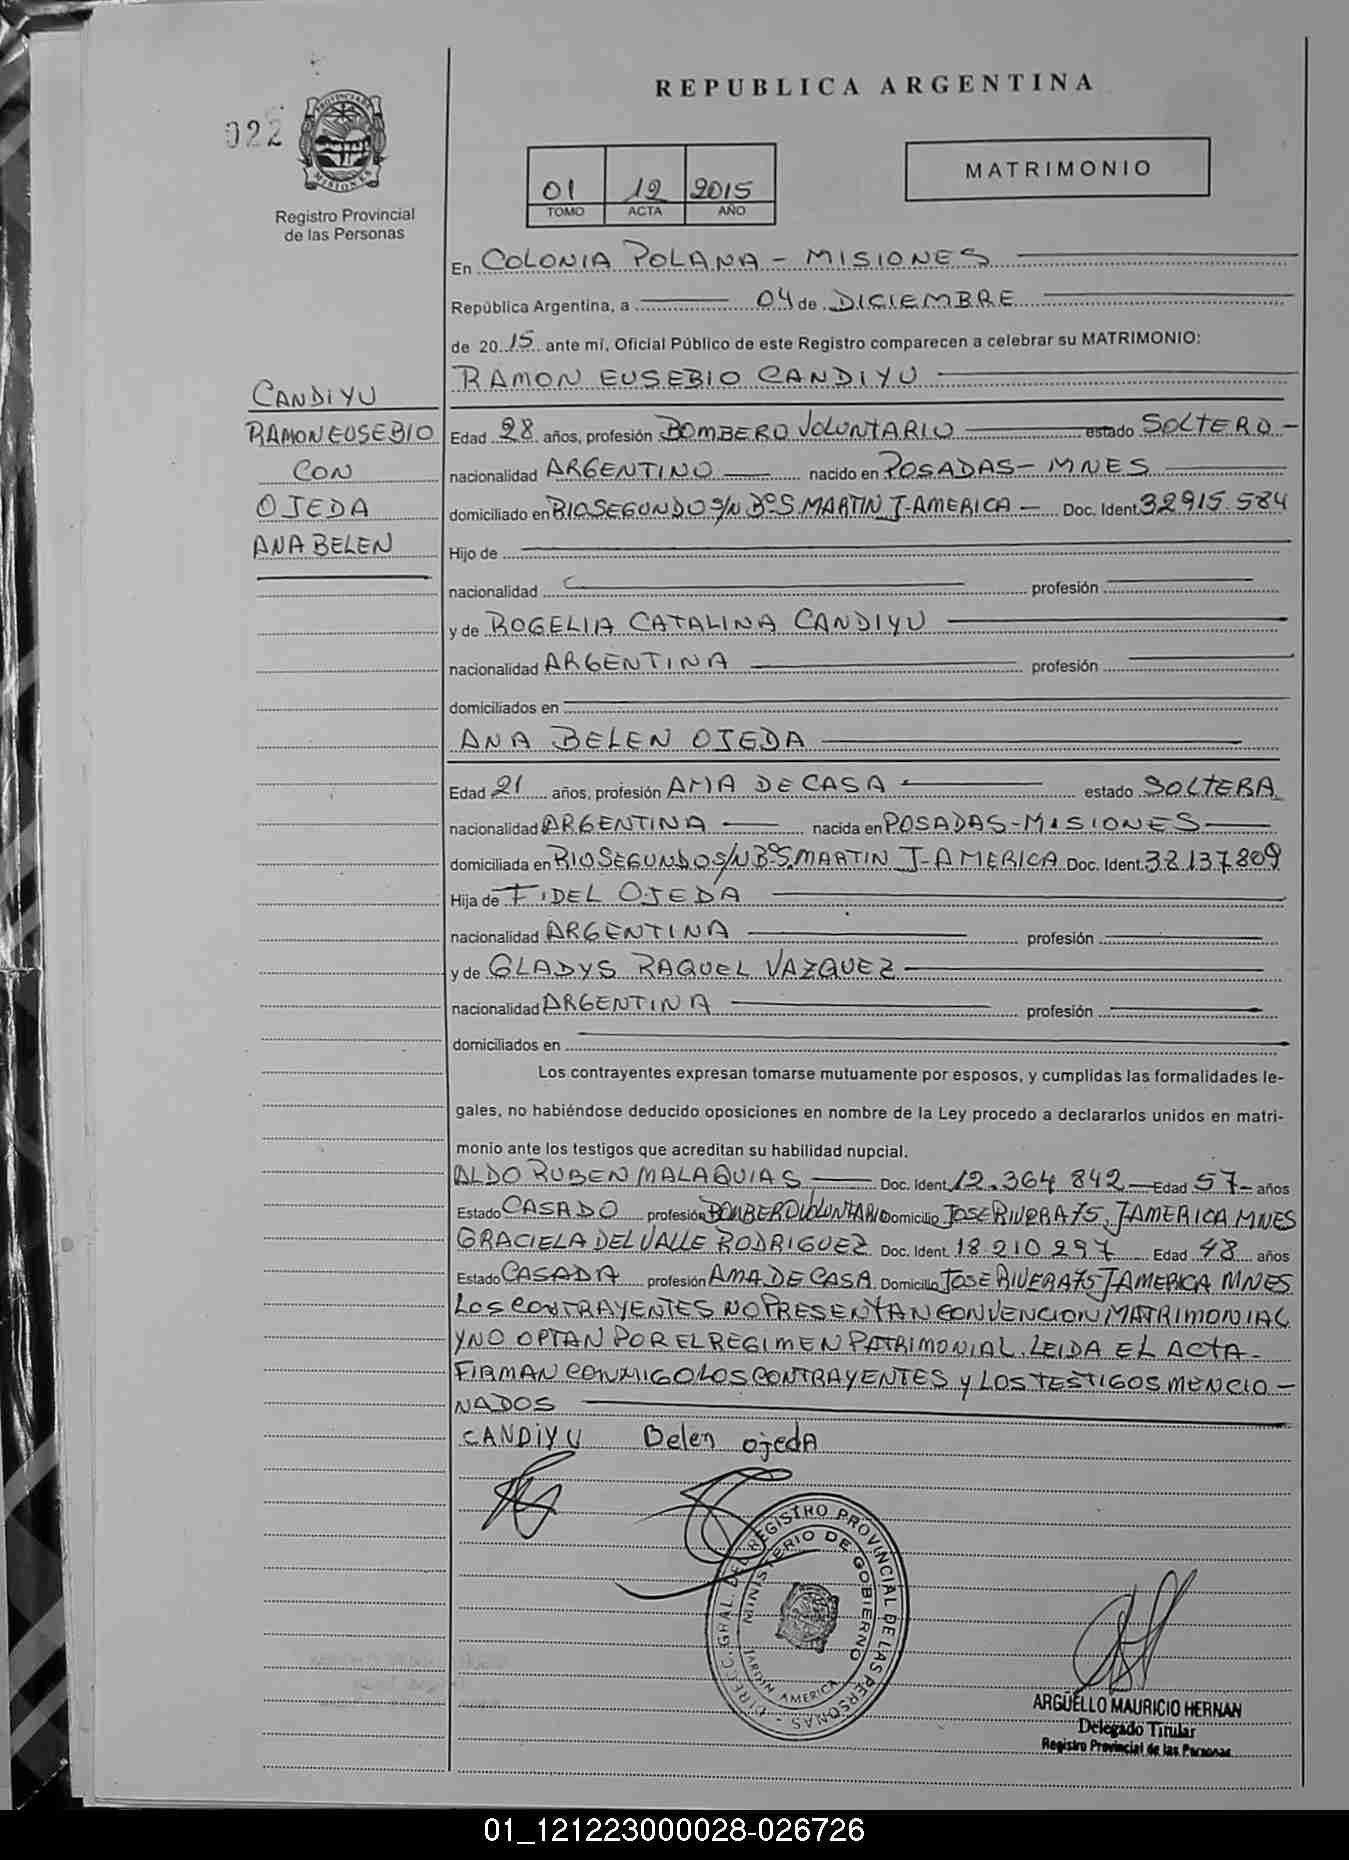 REPUBLICA ARGENTINA
022
PROVINCIA DE
MISIONES
Registro Provincial
de las Personas
01 12 2015
TOMO ACTA AÑO
MATRIMONIO
En COLONIA POLANA - MISIONES
República Argentina, a 04 de DICIEMBRE
de 2015 ante mí, Oficial Público de este Registro comparecen a celebrar su MATRIMONIO:
RAMON EUSEBIO CANDIYU
CANDIYU
RAMON EUSEBIO
CON
OJEDA
ANA BELEN
Edad 28 años, profesión BOMBERO VOLUNTARIO estado SOLTERO -
nacionalidad ARGENTINO nacido en POSADAS - MNES
domiciliado en RIO SEGUNDO S/N Bº S. MARTIN J-AMERICA - Doc. Ident. 32915.584
Hijo de
nacionalidad profesión
y de ROGELIA CATALINA CANDIYU
nacionalidad ARGENTINA profesión
domiciliados en
ANA BELEN OJEDA
Edad 21 años, profesión AMA DE CASA estado SOLTERA
nacionalidad ARGENTINA nacida en POSADAS - MISIONES
domiciliada en RIO SEGUNDO S/N Bº S. MARTIN J-AMERICA Doc. Ident. 38137809
Hija de FIDEL OJEDA
nacionalidad ARGENTINA profesión
y de GLADYS RAQUEL VAZQUEZ
nacionalidad ARGENTINA profesión
domiciliados en
Los contrayentes expresan tomarse mutuamente por esposos, y cumplidas las formalidades le-
gales, no habiéndose deducido oposiciones en nombre de la Ley procedo a declararlos unidos en matri-
monio ante los testigos que acreditan su habilidad nupcial.
ALDO RUBEN MALAQUIAS Doc. Ident. 12.364 842 - Edad 57 - años
Estado CASADO profesión BOMBERO VOLUNTARIO Domicilio JOSE RIVERA 75, J-AMERICA MNES
GRACIELA DEL VALLE RODRIGUEZ Doc. Ident. 18 210 297 Edad 48 años
Estado CASADA profesión AMA DE CASA Domicilio JOSE RIVERA 75 J-AMERICA MNES
LOS CONTRAYENTES NO PRESENTAN CONVENCION MATRIMONIAL
Y NO OPTAN POR EL REGIMEN PATRIMONIAL. LEIDA EL ACTA -
FIRMAN CONMIGO LOS CONTRAYENTES Y LOS TESTIGOS MENCIO -
NADOS
CANDIYU Belen ojedA
DIREC. GRAL. DEL REGISTRO PROVINCIAL DE LAS PERSONAS -
MINISTERIO DE GOBIERNO
JARDIN AMERICA
ARGÜELLO MAURICIO HERNAN
Delegado Titular
Registro Provincial de las Personas
01_121223000028-026726